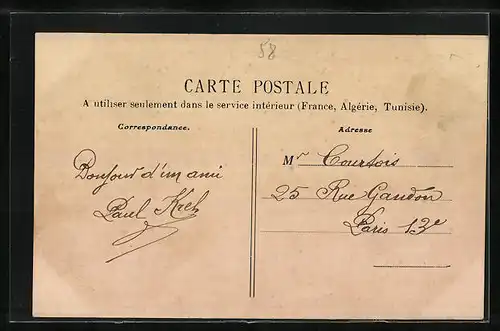 58
CARTE POSTALE
A utiliser seulement dans le service intérieur (France, Algérie, Tunisie).
Correspondance.
Adresse
Bonjour d'un ami
Paul
Mr Courtois
25 Rue Gandon
Paris 13e